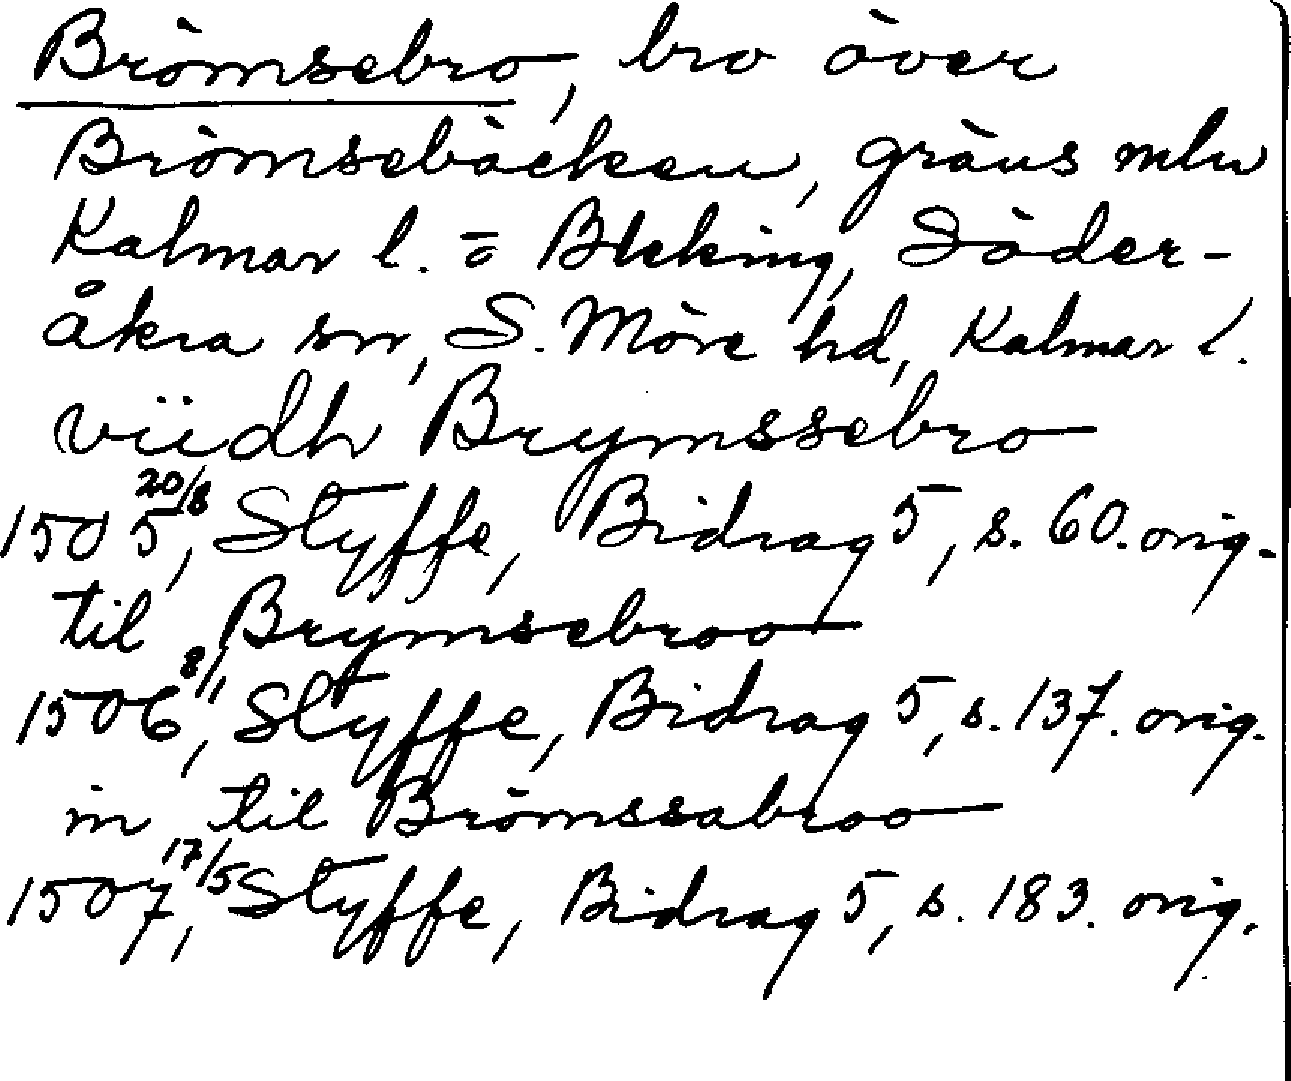 Brömsebro, bro över
Brömsebäcken, gräns mln
Kalmar l. o Bleking, Söder-
åkra sn, S. Möre hd, Kalmar l.
viidh Brymssebro
1505 20/8, Styffe, Bidrag 5, s. 60. orig.
til Brymsebroo
1506 8/11, Styffe, Bidrag 5, s. 137. orig.
in til Brömssabroo
1507 17/5, Styffe, Bidrag 5, s. 183. orig.